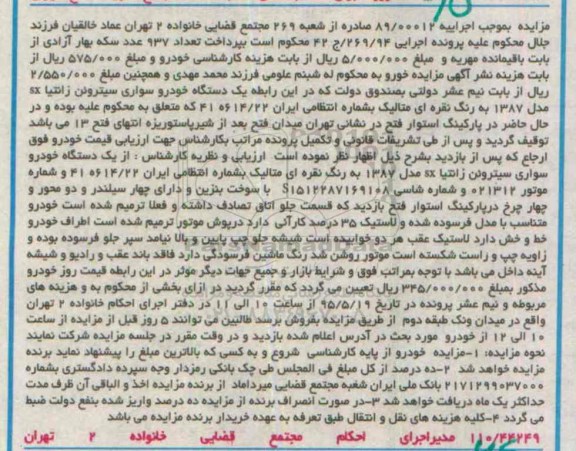 مزایده بموجب اجراییه ۸۹/۰۰۰۱۲ صادره از شعبه ۲۶۹ مجتمع قضایی خانواده ۲ تهران عماد خالقیان فرزند
جلال محکوم علیه پرونده اجرایی ۲۶۹/۹۴/ج ۴۲ محکوم است بپرداخت تعداد ۹۳۷ عدد سکه بهار آزادی از
بابت باقیمانده مهریه و مبلغ ۵/۰۰۰/۰۰۰ ریال از بابت هزینه کارشناسی خودرو و مبلغ ۵۷۵/۰۰۰ ریال از
بابت هزینه نشر آگهی مزایده خورو به محکوم له شبنم علومی فرزند محمد مهدی و همچنین مبلغ ۲/۵۵۰/۰۰۰
ریال از بابت نیم عشر دولتی بصندوق دولت که در این رابطه یک دستگاه خودرو سواری سیتروئن زانتیا sx
مدل ۱۳۸۷ به رنگ نقره ای متالیک بشماره انتظامی ایران ۲۲/۶۱۴ه ۴۱ که متعلق به محکوم علیه بوده و در
حال حاضر در پارکینگ استوار فتح در نشانی تهران میدان فتح بعد از شیرپاستوریزه انتهای فتح ۱۳ می باشد
توقیف گردید و پس از طی تشریفات قانونی و تکمیل پرونده مراتب بکارشناس جهت ارزیابی قیمت خودرو فوق
ارجاع که پس از بازدید بشرح ذیل اظهار نظر نموده است ارزیابی و نظریه کارشناس : از یک دستگاه خودرو
سواری سیتروئن زانتیا sx مدل ۱۳۸۷ به رنگ نقره ای متالیک بشماره انتظامی ایران ۲۲/۶۱۴ه ۴۱ و شماره
موتور ۰۲۱۳۱۲ و شماره شاسی S۱۵۱۲۲۸۷۱۶۹۱۰۸ با سوخت بنزین و دارای چهار سیلندر و دو محور و
چهار چرخ درپارکینگ استوار فتح بازدید که قسمت جلو اتاق تصادف داشته و فعلا ترمیم شده است خودرو
متناسب با مدل فرسوده شده و لاستیک ۳۵ درصد کارآئی دارد درپوش موتور ترمیم شده است اطراف خودرو
خط و خش دارد لاستیک عقب هر دو خوابیده است شیشه جلو چپ پایین و بالا نیامد سپر جلو فرسوده بوده و
زاویه چپ و راست شکسته است موتور روشن شد رنگ ماشین فرسودگی دارد فاقد باند عقب و رادیو و شیشه
آینه داخل می باشد با توجه بمراتب فوق و شرایط بازار و جمیع جهات دیگر موثر در این رابطه قیمت روز خودرو
مذکور بمبلغ ۳۴۵/۰۰۰/۰۰۰ ریال تعیین می گردد که مقرر گردید در ازای بخشی از محکوم به و هزینه های
مربوطه و نیم عشر پرونده در تاریخ ۹۵/۵/۱۹ از ساعت ۱۰ الی ۱۱ در دفتر اجرای احکام خانواده ۲ تهران
واقع در میدان ونک طبقه دوم از طریق مزایده بفروش برسد طالبین می توانند ۵ روز قبل از مزایده از ساعت
۱۰ الی ۱۲ از خودرو مورد بحث در آدرس اعلام شده بازدید و در وقت مقرر در جلسه مزایده شرکت نمایند
نحوه مزایده: ۱-مزایده خودرو از پایه کارشناسی شروع و به کسی که بالاترین مبلغ را پیشنهاد نماید برنده
مزایده خواهد شد ۲-ده درصد از کل مبلغ فی المجلس طی چک بانکی رمزدار وجه سپرده دادگستری بشماره
۲۱۷۱۲۹۹۰۳۷۰۰۰ بانک ملی ایران شعبه مجتمع قضایی میرداماد از برنده مزایده اخذ و الباقی آن ظرف مدت
حداکثر یک ماه دریافت خواهد شد ۳-در صورت انصراف برنده از مزایده ده درصد واریز شده بنفع دولت ضبط
می گردد ۴-کلیه هزینه های نقل و انتقال طبق تعرفه به عهده خریدار برنده مزایده می باشد
۱۱۰/۴۴۲۴۹ مدیراجرای احکام مجتمع قضایی خانواده ۲ تهران